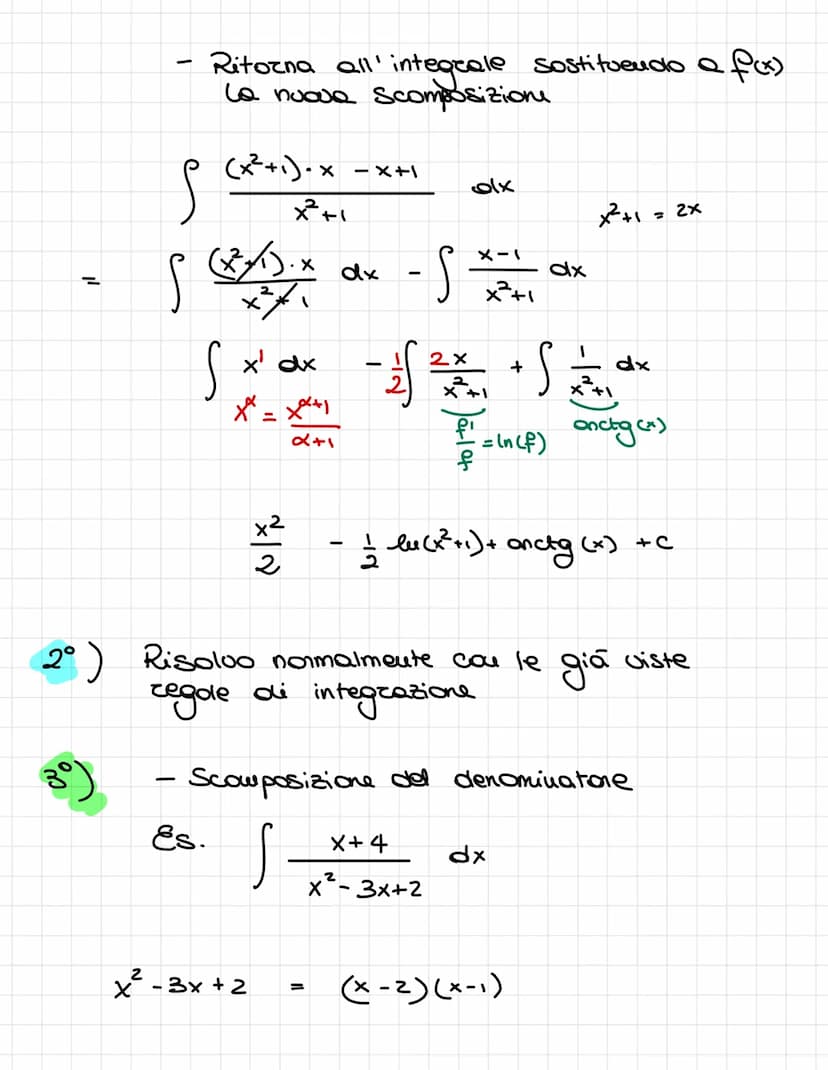 - Ritorna all'integrale sostituendo a f(x)
la nuova scomposizione
∫ (x²+1)·x -x+1 / x²+1 dx
x²+1 = 2x
= ∫ (x²+1)·x / x²+1 dx - ∫ x-1 / x²+1 dx
∫ x¹ dx - 1/2 ∫ 2x / x²+1 + ∫ 1 / x²+1 dx
x^α = x^α+1 / α+1
f' / f = ln(f)
arctg(x)
x² / 2 - 1/2 ln(x²+1) + arctg(x) + c
2°) Risolvo normalmente con le già viste
regole di integrazione
3°) - Scomposizione del denominatore
Es. ∫ x+4 / x²-3x+2 dx
x²-3x+2 = (x-2)(x-1)